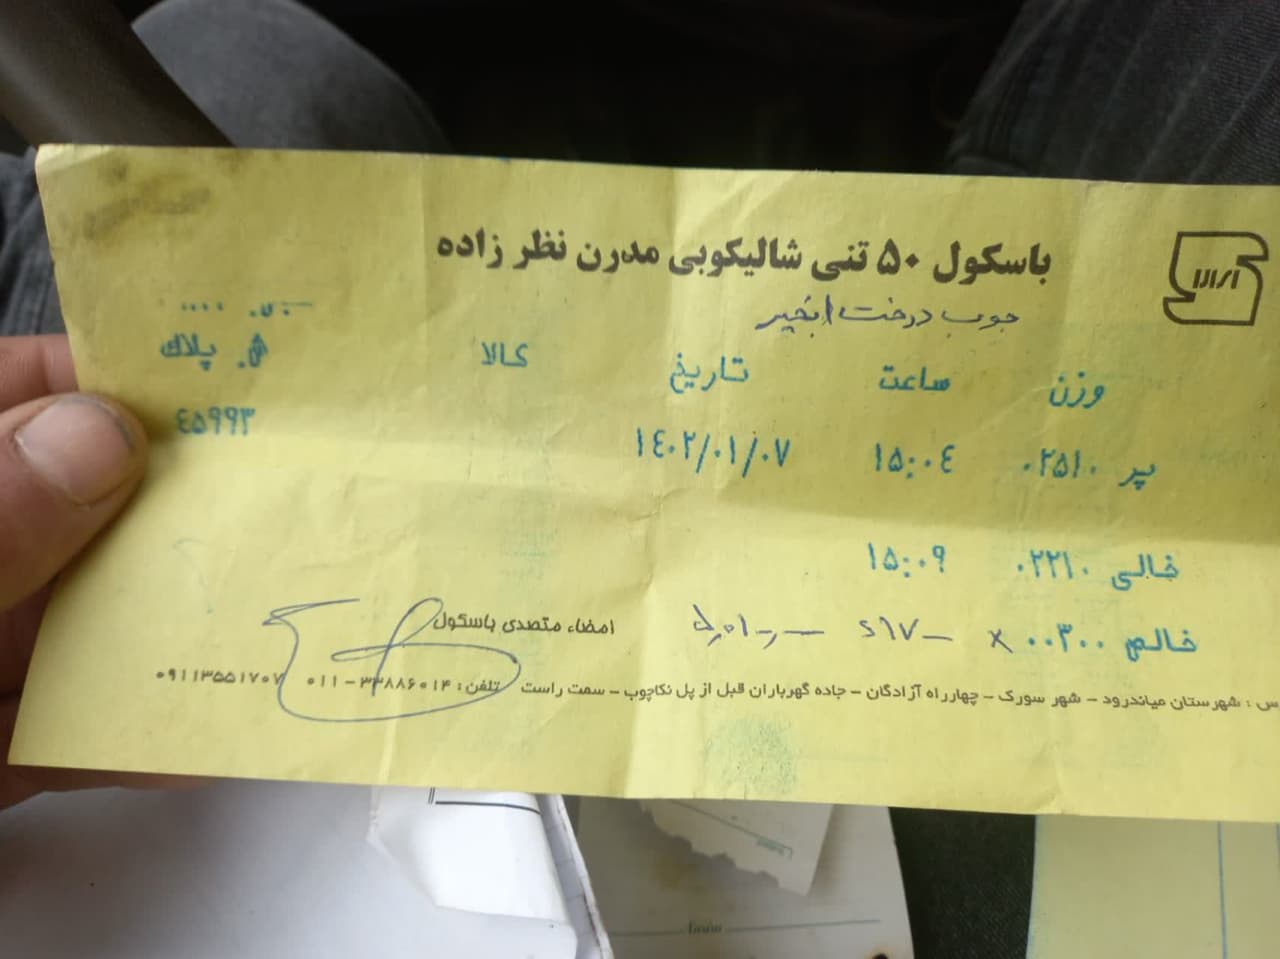 باسکول ۵۰ تنی شالیکوبی مدرن نظر زاده
چوب درخت انجیر
وزن ساعت تاریخ کالا ش. پلاک
پر ۰۲۵۱۰ ۱۵:۰۴ ۱۴۰۲/۰۱/۰۷ ۴۵۹۹۳
خالی ۰۲۲۱۰ ۱۵:۰۹
خالص ۰۰۳۰۰ ×
امضاء متصدی باسکول
س : شهرستان میاندرود - شهر سورک - چهارراه آزادگان - جاده گهرباران قبل از پل نکاچوب - سمت راست تلفن: ۳۳۸۸۶۰۱۴-۰۱۱ ۰۹۱۱۳۵۵۱۷۰۷